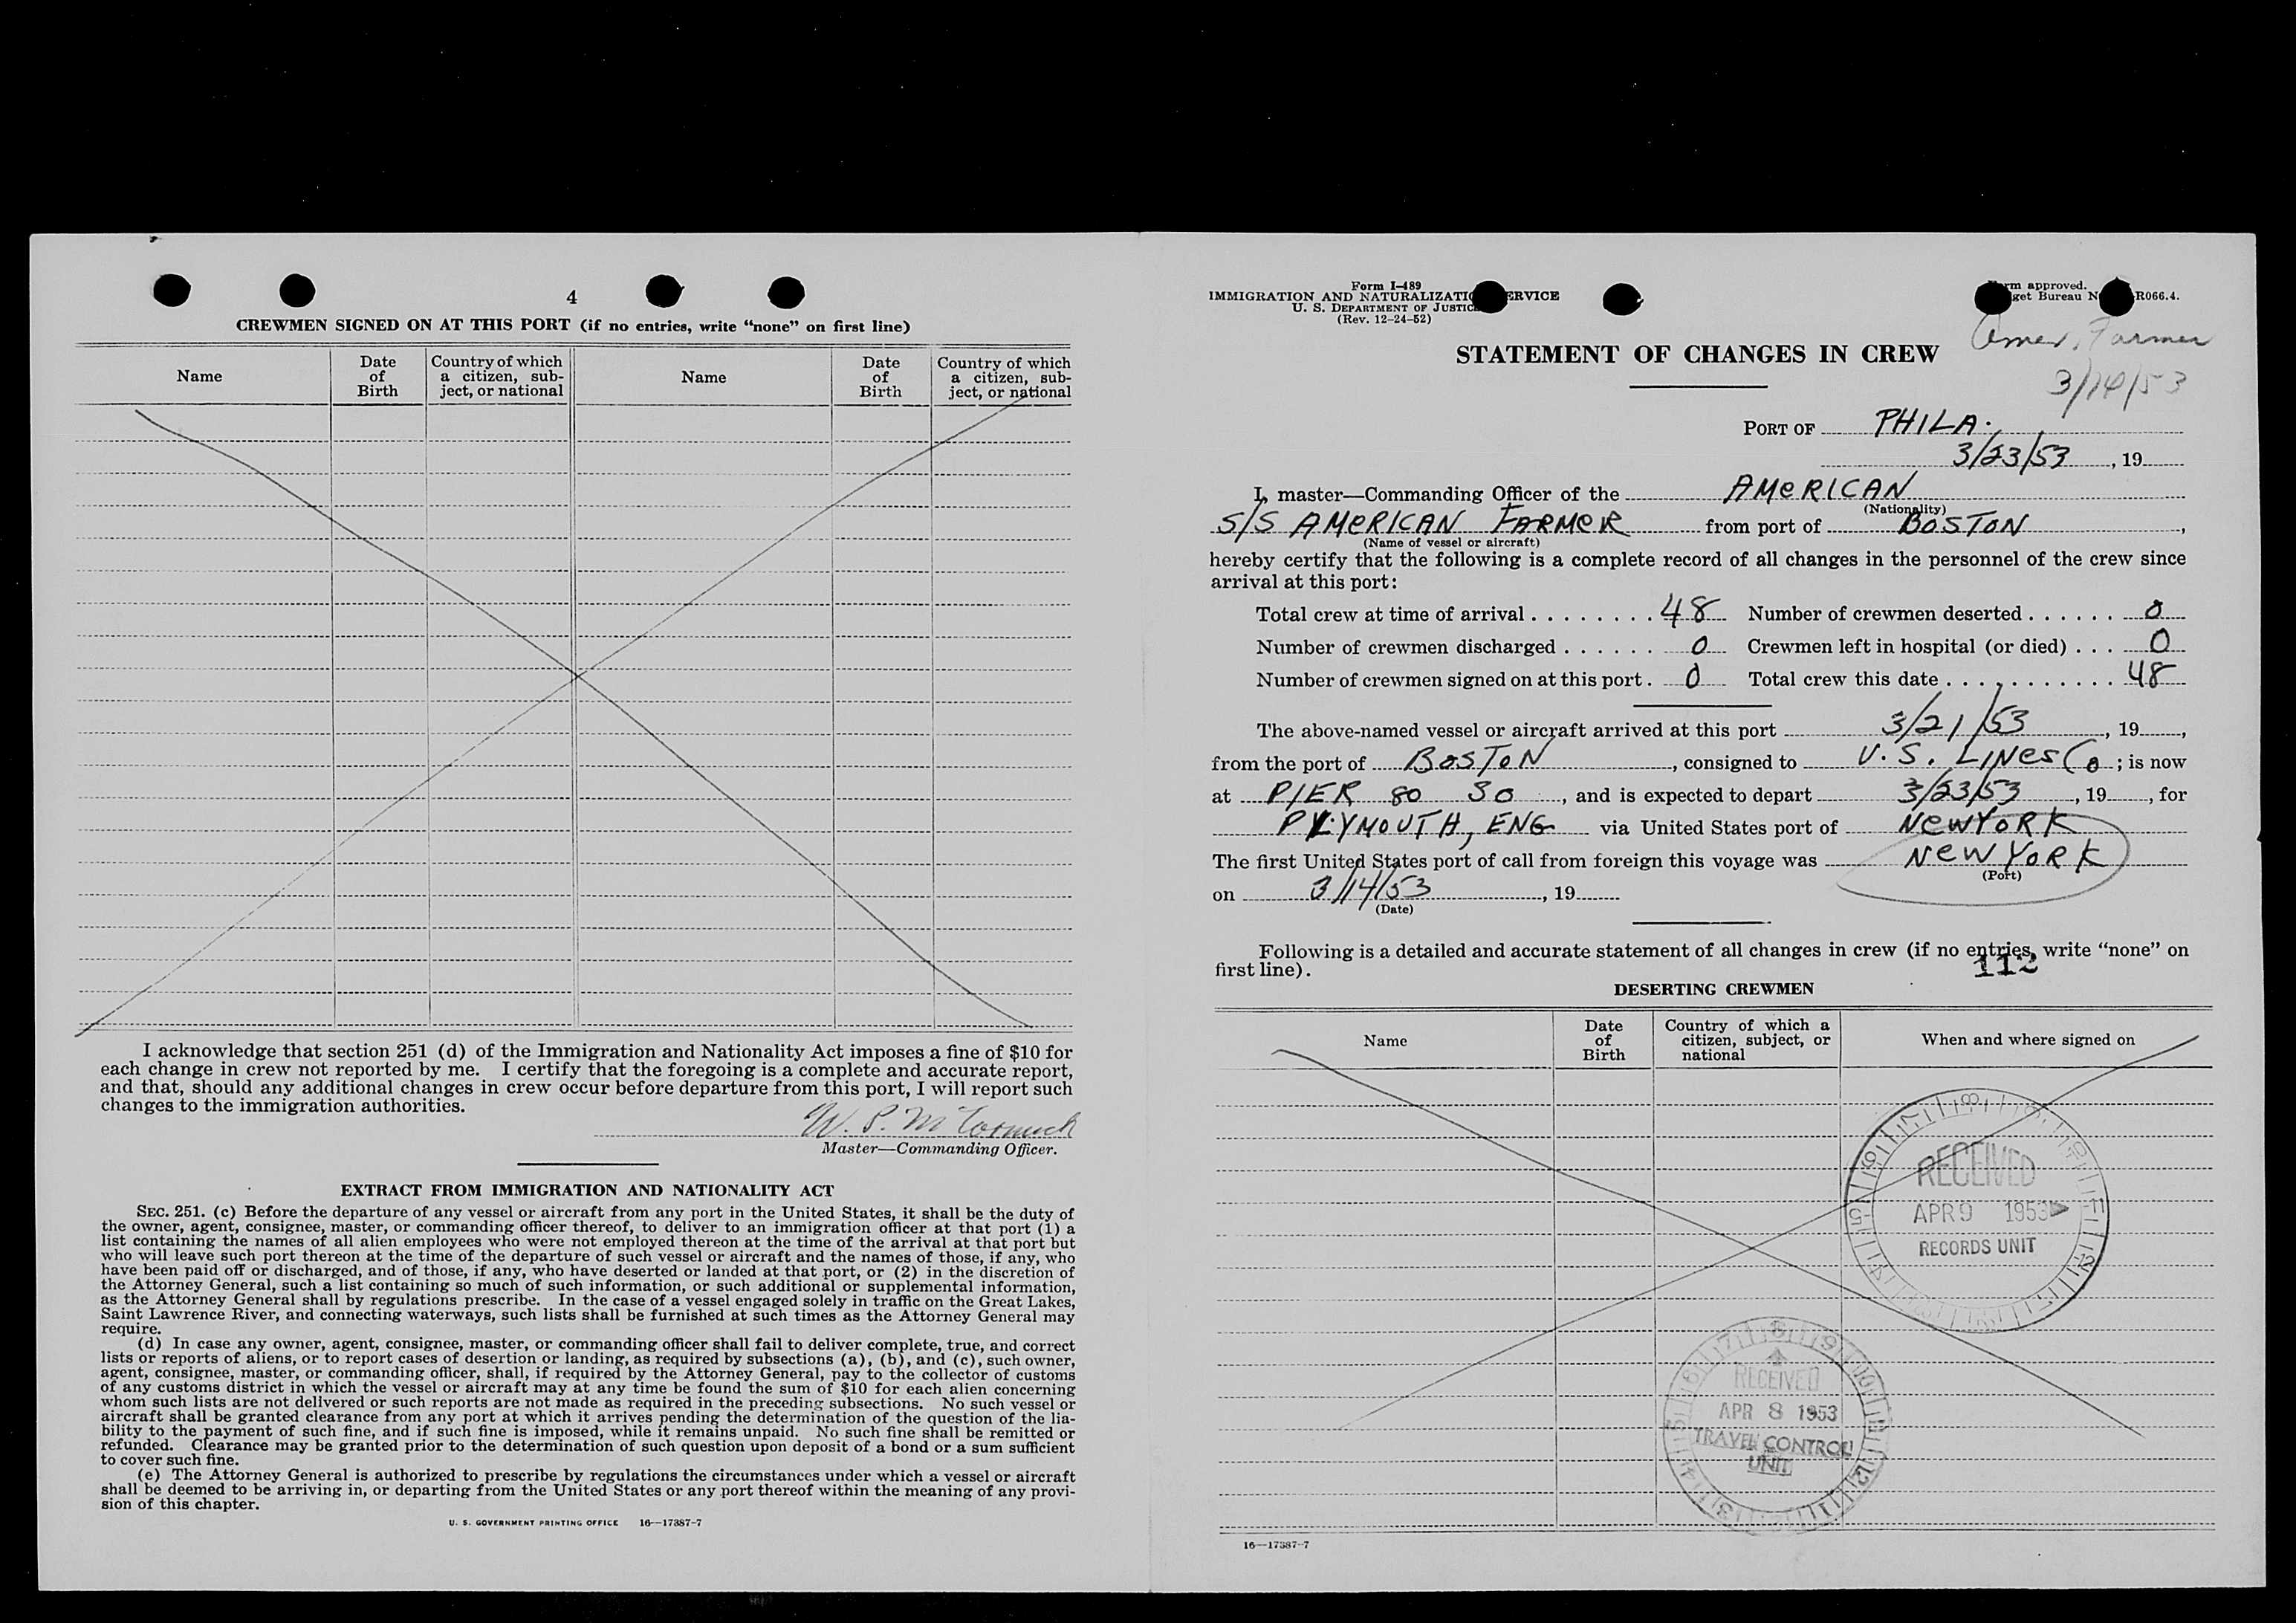 4
CREWMEN SIGNED ON AT THIS PORT (if no entries, write “none” on first line)
Name
Date of Birth
Country of which a citizen, sub-ject, or national
Name
Date of Birth
Country of which a citizen, sub-ject, or national
I acknowledge that section 251 (d) of the Immigration and Nationality Act imposes a fine of $10 for
each change in crew not reported by me. I certify that the foregoing is a complete and accurate report,
and that, should any additional changes in crew occur before departure from this port, I will report such
changes to the immigration authorities.
W. P. McCormick
Master—Commanding Officer.
EXTRACT FROM IMMIGRATION AND NATIONALITY ACT
SEC. 251. (c) Before the departure of any vessel or aircraft from any port in the United States, it shall be the duty of
the owner, agent, consignee, master, or commanding officer thereof, to deliver to an immigration officer at that port (1) a
list containing the names of all alien employees who were not employed thereon at the time of the arrival at that port but
who will leave such port thereon at the time of the departure of such vessel or aircraft and the names of those, if any, who
have been paid off or discharged, and of those, if any, who have deserted or landed at that port, or (2) in the discretion of
the Attorney General, such a list containing so much of such information, or such additional or supplemental information,
as the Attorney General shall by regulations prescribe. In the case of a vessel engaged solely in traffic on the Great Lakes,
Saint Lawrence River, and connecting waterways, such lists shall be furnished at such times as the Attorney General may
require.
(d) In case any owner, agent, consignee, master, or commanding officer shall fail to deliver complete, true, and correct
lists or reports of aliens, or to report cases of desertion or landing, as required by subsections (a), (b), and (c), such owner,
agent, consignee, master, or commanding officer, shall, if required by the Attorney General, pay to the collector of customs
of any customs district in which the vessel or aircraft may at any time be found the sum of $10 for each alien concerning
whom such lists are not delivered or such reports are not made as required in the preceding subsections. No such vessel or
aircraft shall be granted clearance from any port at which it arrives pending the determination of the question of the lia-
bility to the payment of such fine, and if such fine is imposed, while it remains unpaid. No such fine shall be remitted or
refunded. Clearance may be granted prior to the determination of such question upon deposit of a bond or a sum sufficient
to cover such fine.
(e) The Attorney General is authorized to prescribe by regulations the circumstances under which a vessel or aircraft
shall be deemed to be arriving in, or departing from the United States or any port thereof within the meaning of any provi-
sion of this chapter.
U. S. GOVERNMENT PRINTING OFFICE 16—17387-7
Form I-489
IMMIGRATION AND NATURALIZATI ERVICE
U. S. DEPARTMENT OF JUSTIC
(Rev. 12-24-52)
rm approved.
get Bureau N R066.4.
Amer. Farmer
3/14/53
STATEMENT OF CHANGES IN CREW
PORT OF PHILA.
3/23/53, 19
I, master—Commanding Officer of the AMERICAN
(Nationality)
S/S AMERICAN FARMER from port of BOSTON,
(Name of vessel or aircraft)
hereby certify that the following is a complete record of all changes in the personnel of the crew since
arrival at this port:
Total crew at time of arrival 48 Number of crewmen deserted 0
Number of crewmen discharged 0 Crewmen left in hospital (or died) 0
Number of crewmen signed on at this port. 0 Total crew this date 48
The above-named vessel or aircraft arrived at this port 3/21/53, 19,
from the port of BOSTON, consigned to U.S. LINES Co; is now
at PIER 80 SO, and is expected to depart 3/23/53, 19, for
PLYMOUTH, ENG via United States port of NEW YORK
The first United States port of call from foreign this voyage was NEW YORK
(Port)
on 3/14/53, 19
(Date)
Following is a detailed and accurate statement of all changes in crew (if no entries, write “none” on
first line).
112
DESERTING CREWMEN
Name
Date of Birth
Country of which a citizen, subject, or national
When and where signed on
RECEIVED
APR 9 1953
RECORDS UNIT
RECEIVED
APR 8 1953
TRAVEL CONTROL
UNIT
16—17387-7